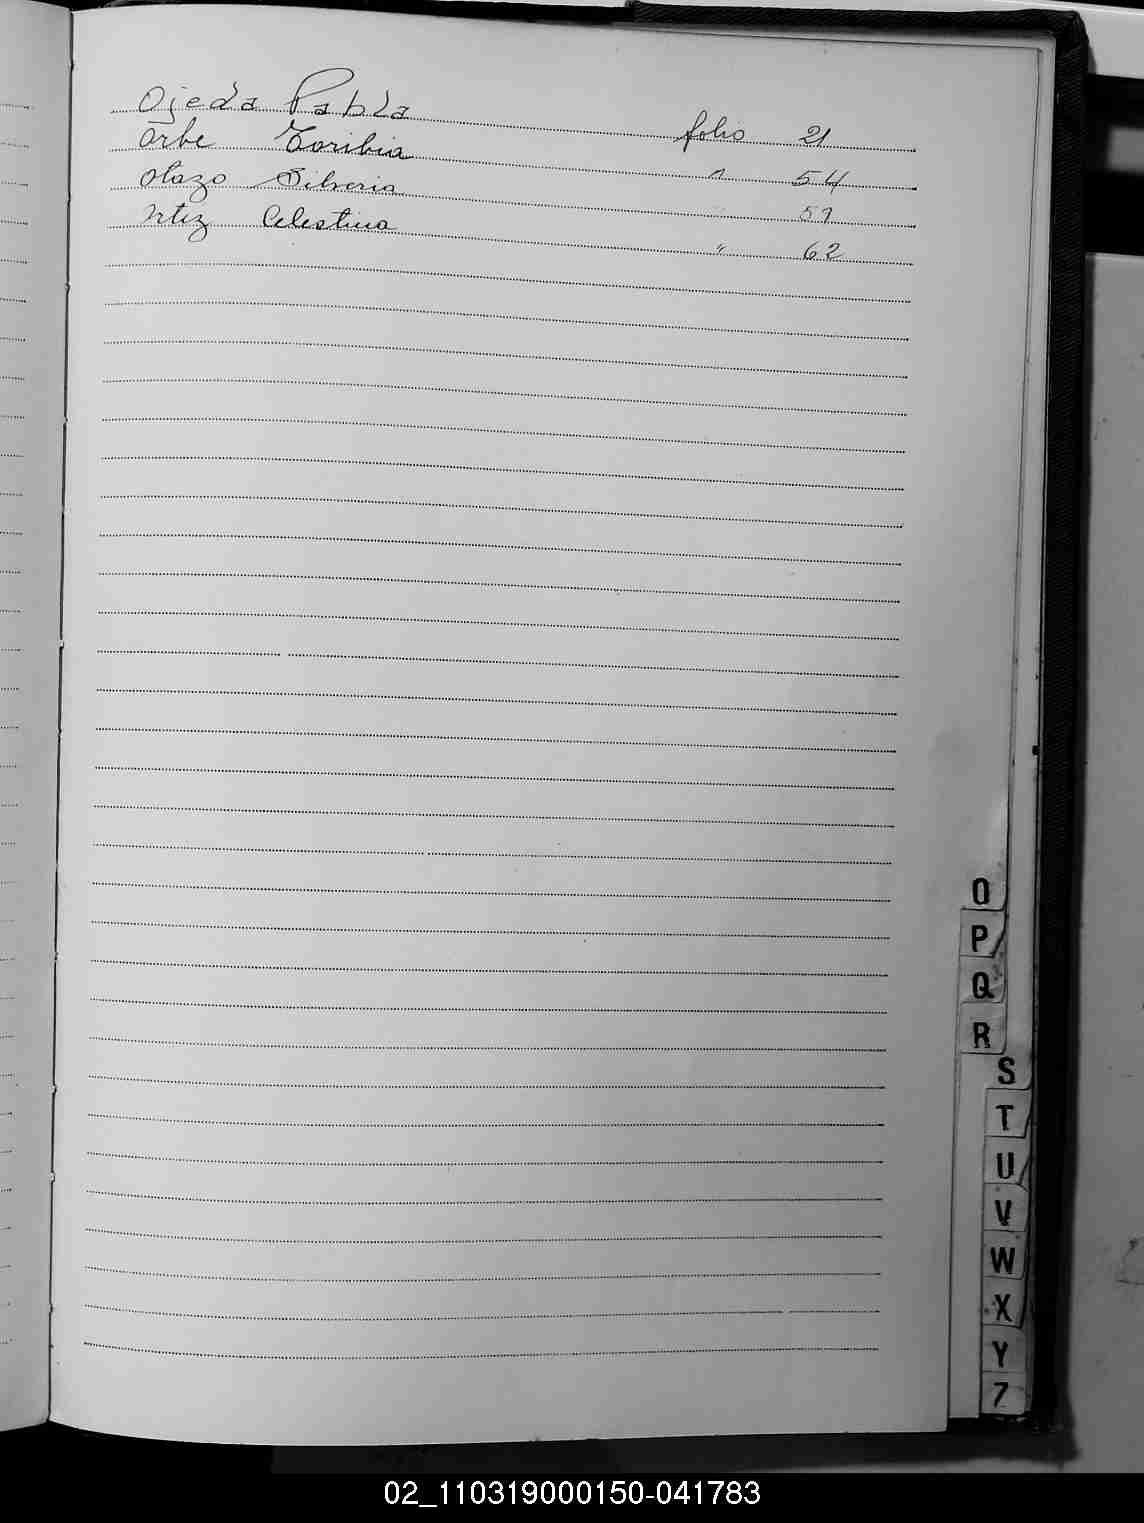 Ojeda Pabla folio 21
Orbe Toribia " 54
Otazo Silveria " 57
Ortiz Celestina " 62
O
P
Q
R
S
T
U
V
W
X
Y
Z
02_110319000150-041783